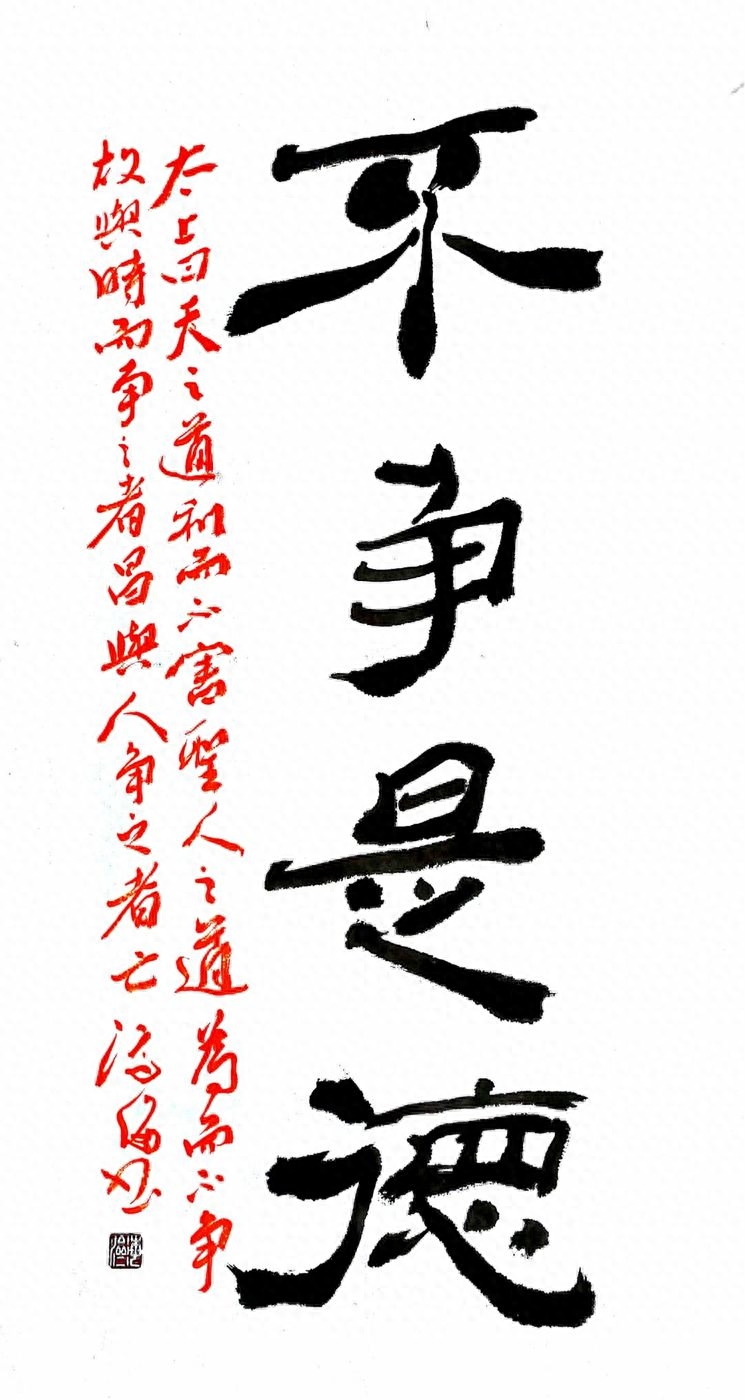 不争是德
太上曰天之道利而不害聖人之道為而不争
故與時而争之者昌與人争之者亡